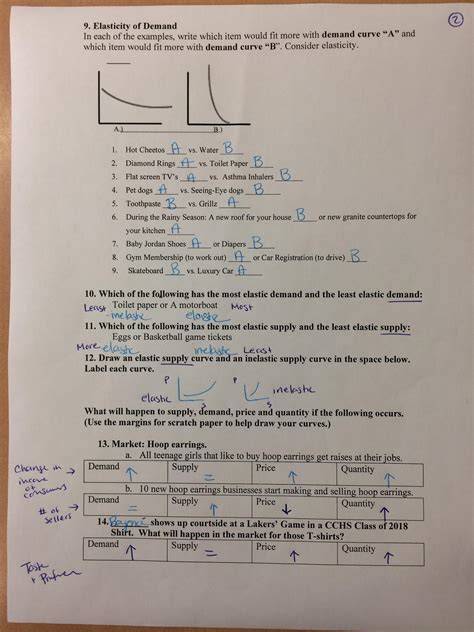 ②
9. Elasticity of Demand
In each of the examples, write which item would fit more with demand curve “A” and
which item would fit more with demand curve “B”. Consider elasticity.
A.) B.)
1. Hot Cheetos A vs. Water B
2. Diamond Rings A vs. Toilet Paper B
3. Flat screen TV's A vs. Asthma Inhalers B
4. Pet dogs A vs. Seeing-Eye dogs B
5. Toothpaste B vs. Grillz A
6. During the Rainy Season: A new roof for your house B or new granite countertops for
your kitchen A
7. Baby Jordan Shoes A or Diapers B
8. Gym Membership (to work out) A or Car Registration (to drive) B
9. Skateboard B vs. Luxury Car A
10. Which of the following has the most elastic demand and the least elastic demand:
Least Toilet paper or A motorboat Most
inelastic elastic
11. Which of the following has the most elastic supply and the least elastic supply:
Eggs or Basketball game tickets
More elastic inelastic Least
12. Draw an elastic supply curve and an inelastic supply curve in the space below.
Label each curve.
P P
elastic inelastic
S S
What will happen to supply, demand, price and quantity if the following occurs.
(Use the margins for scratch paper to help draw your curves.)
13. Market: Hoop earrings.
a. All teenage girls that like to buy hoop earrings get raises at their jobs.
Change in income of consumers
Demand ↑ Supply = Price ↑ Quantity ↑
b. 10 new hoop earrings businesses start making and selling hoop earrings.
# of sellers
Demand = Supply ↑ Price ↓ Quantity ↑
14. Beyoncé shows up courtside at a Lakers' Game in a CCHS Class of 2018
Shirt. What will happen in the market for those T-shirts?
Demand ↑ Supply = Price ↑ Quantity ↑
Taste